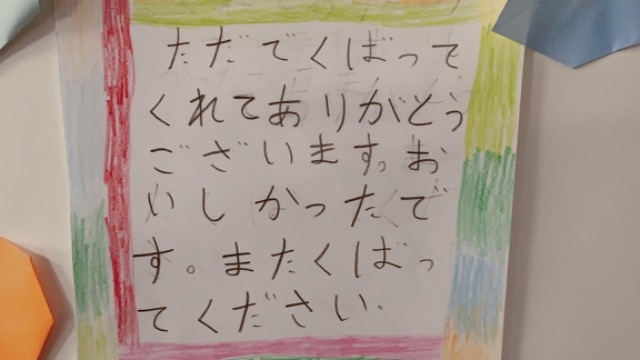 ただでくばって
くれてありがとう
ございます。お
いしかったで
す。またくばっ
てください.